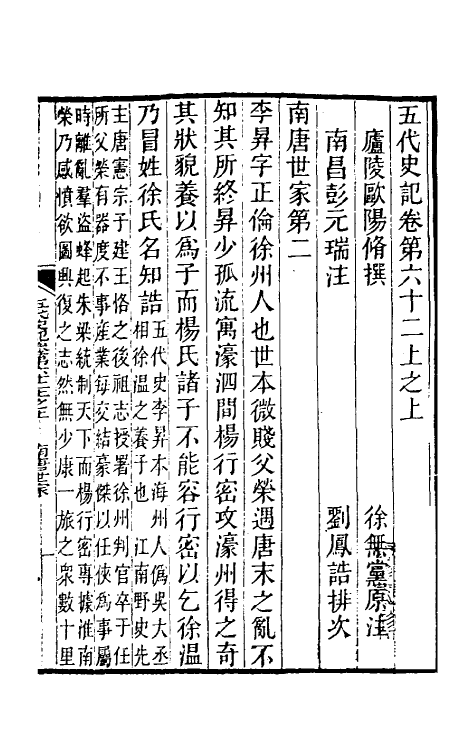 五代史記卷第六十二上之上
廬陵歐陽脩撰 徐無黨原注
南昌彭元瑞注 劉鳳誥排次
南唐世家第二
李昇字正倫徐州人也世本微賤父榮遇唐末之亂不
知其所終昇少孤流寓濠泗間楊行密攻濠州得之奇
其狀貌養以為子而楊氏諸子不能容行密以乞徐温
乃冒姓徐氏名知誥
五代史李昇本海州人僞吳大丞
相徐温之養子也 江南野史先
主唐憲宗子建王恪之後祖志授署徐州判官卒于任
所父榮有器度不事産業每交結豪傑以任俠為事屬
時離亂羣盜蜂起朱梁統制天下而楊行密專據淮南
榮乃感憤欲圖興復之志然無少康一旅之衆數十里